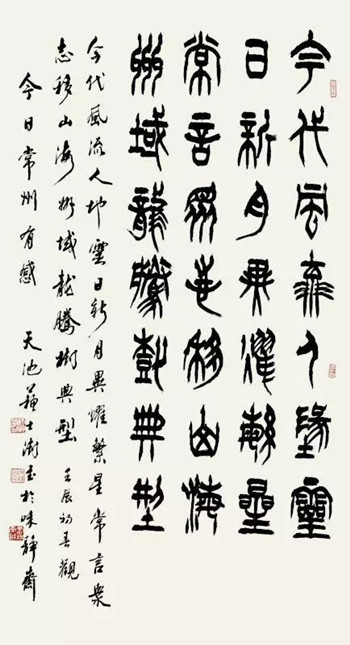 今代風流人地靈
日新月異耀繁星
常言眾志移山海
州域龍騰樹典型
今代風流人地靈日新月異耀繁星常言眾
志移山海州域龍騰樹典型 壬辰初春觀
今日常州有感 天池蘇士澍書於味靜齋